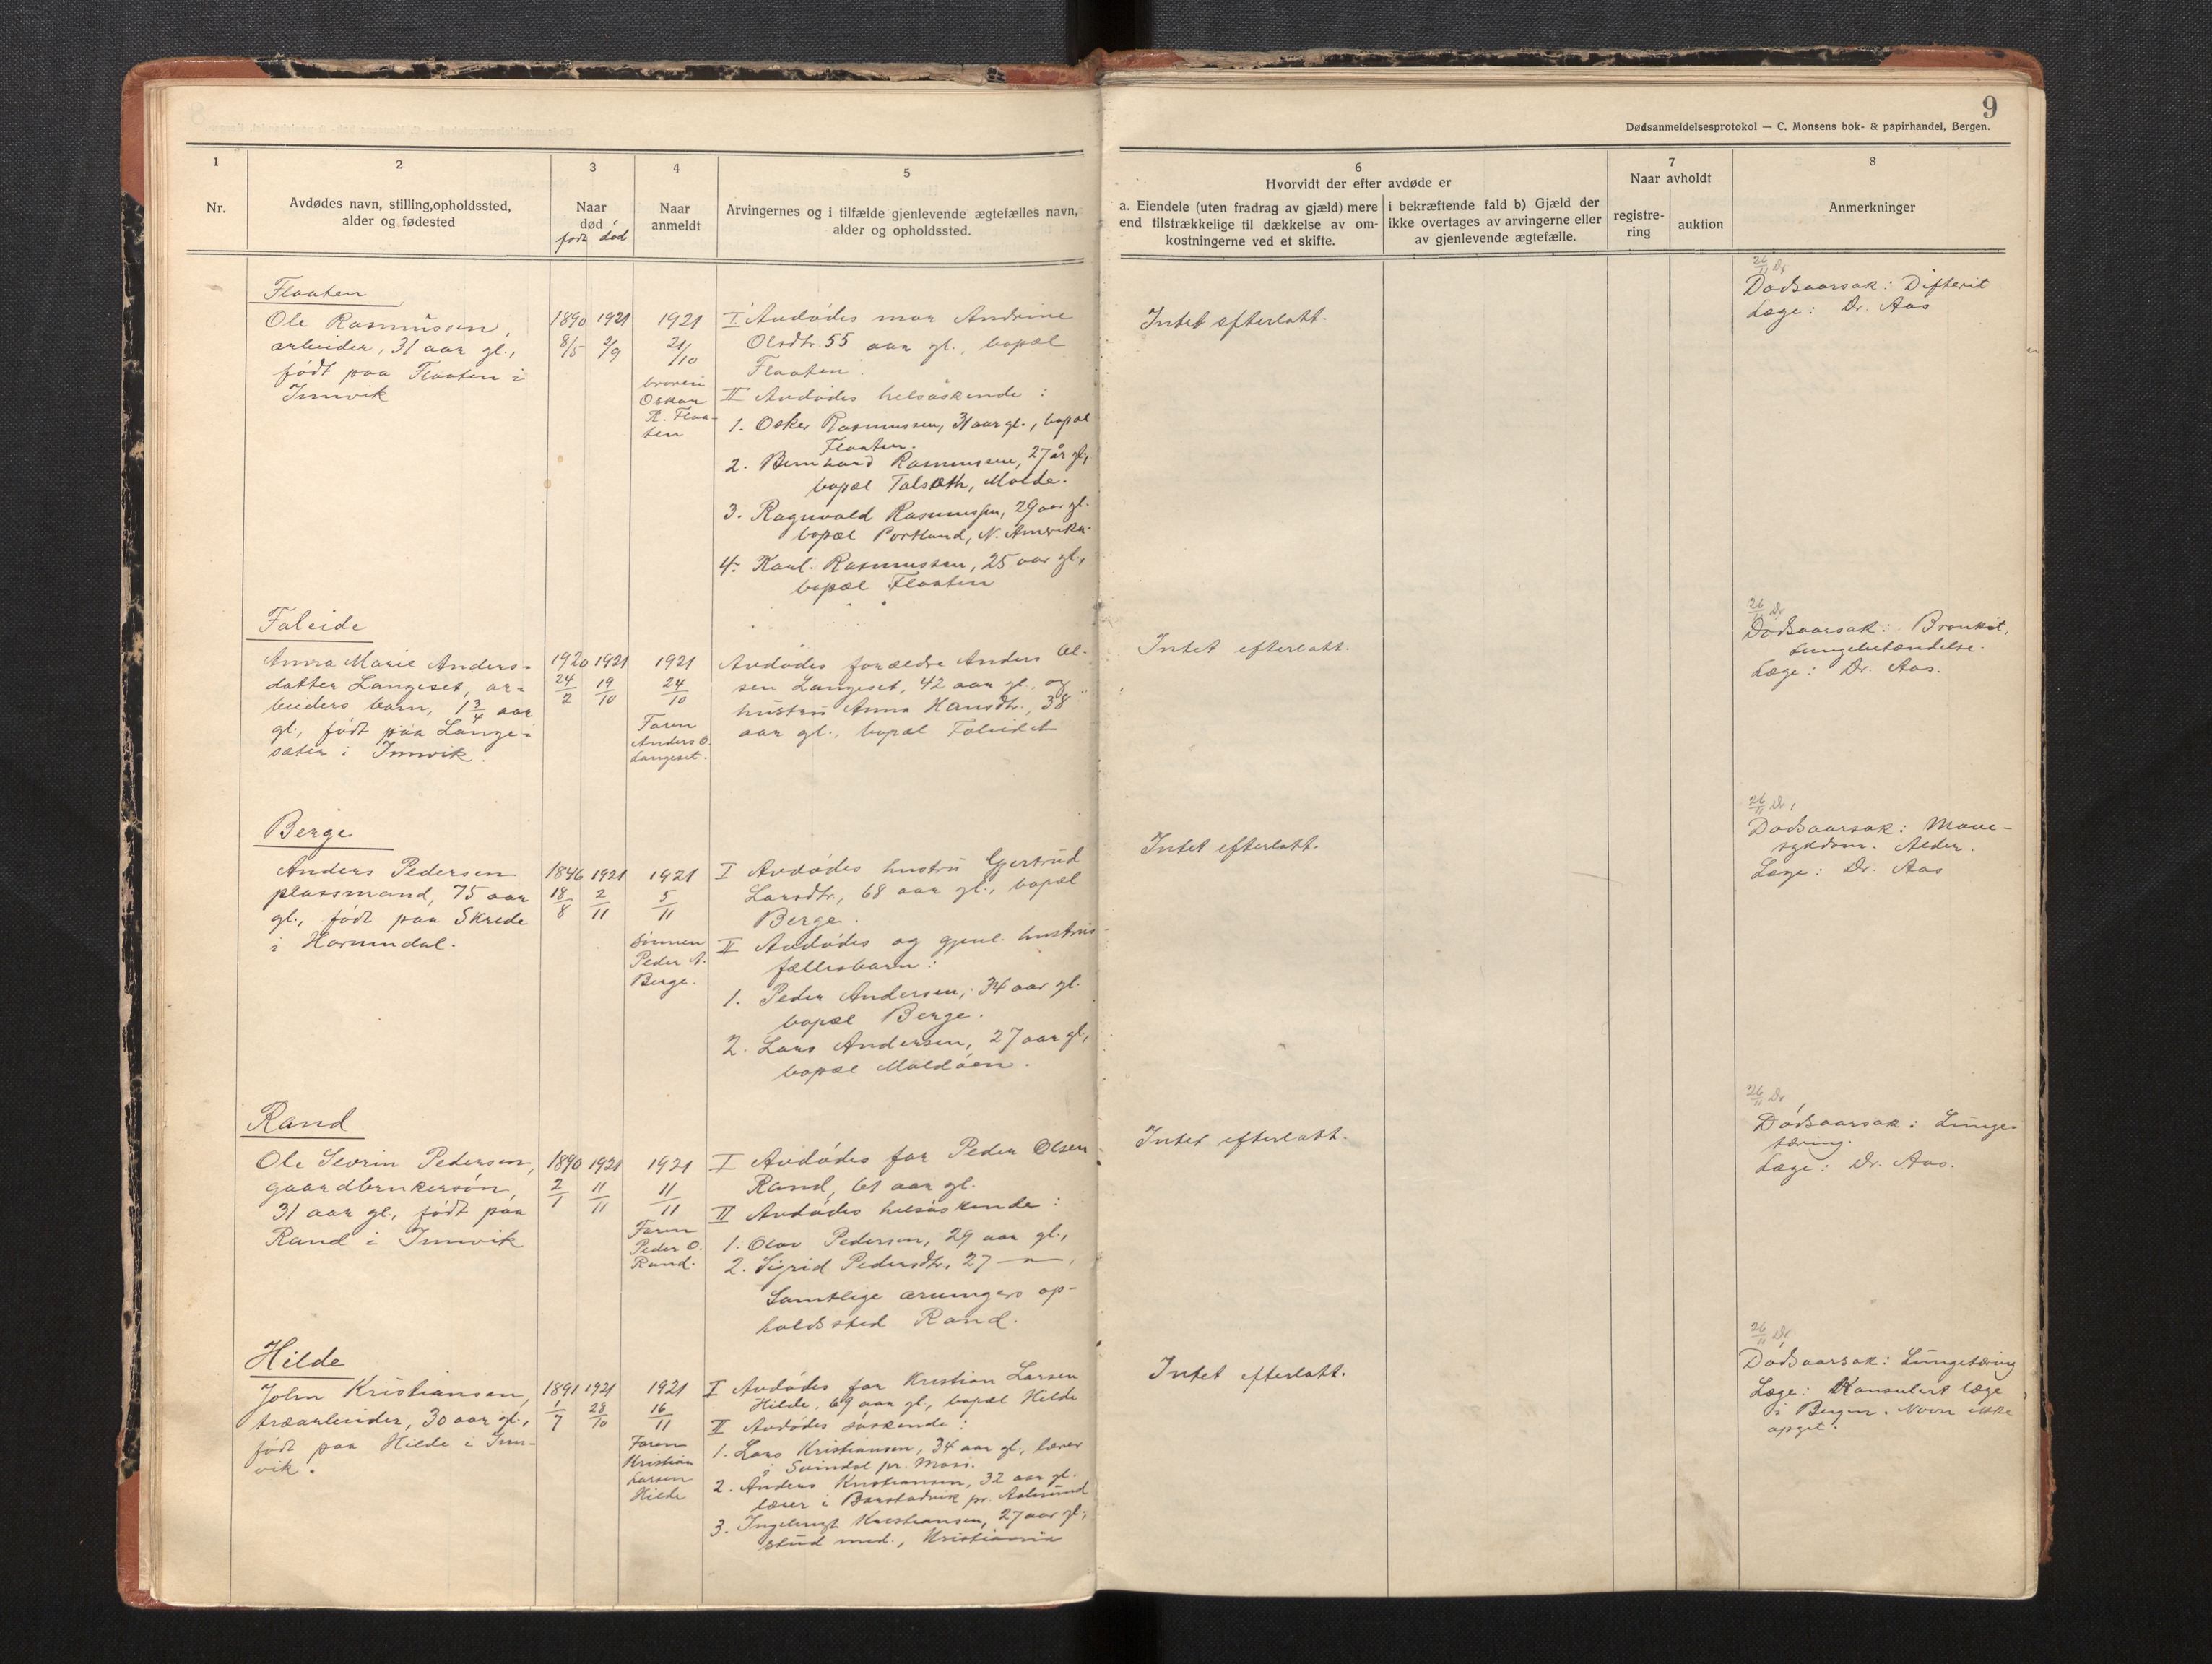 9
Dødsanmeldelsesprotokol — C. Monsens bok- & papirhandel, Bergen.
1
Nr.
2
Avdødes navn, stilling, opholdssted,
alder og fødested
3
Naar
død
født død
4
Naar
anmeldt
5
Arvingernes og i tilfælde gjenlevende ægtefælles navn,
alder og opholdssted.
6
Hvorvidt der efter avdøde er
a. Eiendele (uten fradrag av gjæld) mere
end tilstrækkelige til dækkelse av om-
kostningerne ved et skifte.
i bekræftende fald b) Gjæld der
ikke overtages av arvingerne eller
av gjenlevende ægtefælle.
7
Naar avholdt
registre-
ring
auktion
8
Anmerkninger
Flaaten
Ole Rasmussen,
arbeider, 31 aar gl.,
født paa Flaaten i
Innvik
1890 1921
8/5 2/9
1921
21/10
broren
Oskar
R. Flaa-
ten
I Avdødes mor Andrine
Olsdtr. 55 aar gl., bopæl
Flaaten.
II Avdødes helsøskende:
1. Oskar Rasmussen, 31 aar gl., bopæl
Flaaten.
2. Bernhard Rasmussen, 27 år gl.,
bopæl Talseth, Molde.
3. Ragnvald Rasmussen, 29 aar gl.
bopæl Portland, N. Amerika.
4. Karl Rasmussen, 25 aar gl.,
bopæl Flaaten
Intet efterlatt.
26/11 Dr
Dødsaarsak: Difterit
Læge: Dr. Aas
Faleide
Anna Marie Anders-
datter Langeset, ar-
beiders barn, 1 3/4 aar
gl., født paa Lange-
sæter i Innvik.
1920 1921
24/2 19/10
1921
24/10
Faren
Anders O.
Langeset.
Avdødes forældre Anders Ol-
sen Langeset, 42 aar gl., og
hustru Anna Hansdtr., 38
aar gl., bopæl Faleidet
Intet efterlatt.
26/11 Dr
Dødsaarsak: Bronkit,
Lungebetændelse.
Læge: Dr. Aas.
Berge
Anders Pedersen
plassmand, 75 aar
gl., født paa Skrede
i Hornindal.
1846 1921
18/8 2/11
1921
5/11
Sønnen
Peder A.
Berge.
I Avdødes hustru Gjertrud
Larsdtr., 68 aar gl., bopæl
Berge.
II Avdødes og gjenl. hustrus
fællesbarn:
1. Peder Andersen, 34 aar gl.
bopæl Berge.
2. Lars Andersen, 27 aar gl.,
bopæl Maldøen.
Intet efterlatt.
26/11 Dr
Dødsaarsak: Mave-
sykdom. Alder.
Læge: Dr. Aas
Rand
Ole Sevrin Pedersen,
gaardbrukersøn,
31 aar gl., født paa
Rand i Innvik
1890 1921
2/1 11/11
1921
11/11
Faren
Peder O.
Rand.
I Avdødes far Peder Olsen
Rand, 61 aar gl.
II Avdødes helsøskende:
1. Olav Pedersen, 29 aar gl.,
2. Sigrid Pedersdtr. 27 —"—,
Samtlige arvingers op-
holdssted Rand.
Intet efterlatt.
26/11 Dr
Dødsaarsak: Lunge-
tæring.
Læge: Dr. Aas.
Hilde
John Kristiansen,
træarbeider, 30 aar gl.,
født paa Hilde i Inn-
vik.
1891 1921
1/7 28/10
1921
16/11
Faren
Kristian
Larsen
Hilde
I Avdødes far Kristian Larsen
Hilde, 69 aar gl., bopæl Hilde
II Avdødes søskende:
1. Lars Kristiansen, 34 aar gl., lærer
i Svindal pr. Moss.
2. Anders Kristiansen, 32 aar gl.
lærer i Barstadvik pr. Aalesund
3. Ingebrigt Kristiansen, 27 aar gl.,
stud med., Kristiania
Intet efterlatt.
26/11 Dr
Dødsaarsak: Lungetæring
Læge: Konsulert læge
i Bergen. Navn ikke
opgit.